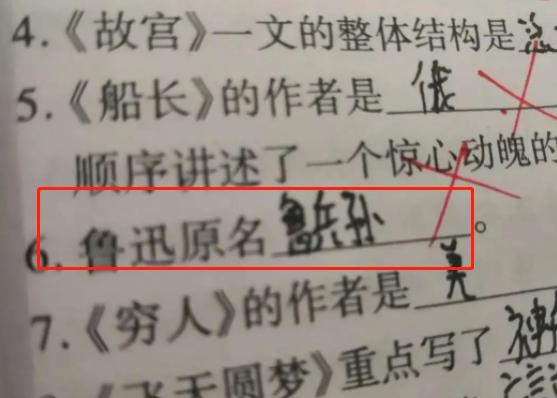 4.《故宫》一文的整体结构是总
5.《船长》的作者是 俄
顺序讲述了一个惊心动魄的
6. 鲁迅原名 鲁兵孙。
7.《穷人》的作者是 美
《飞天圆梦》重点写了 神